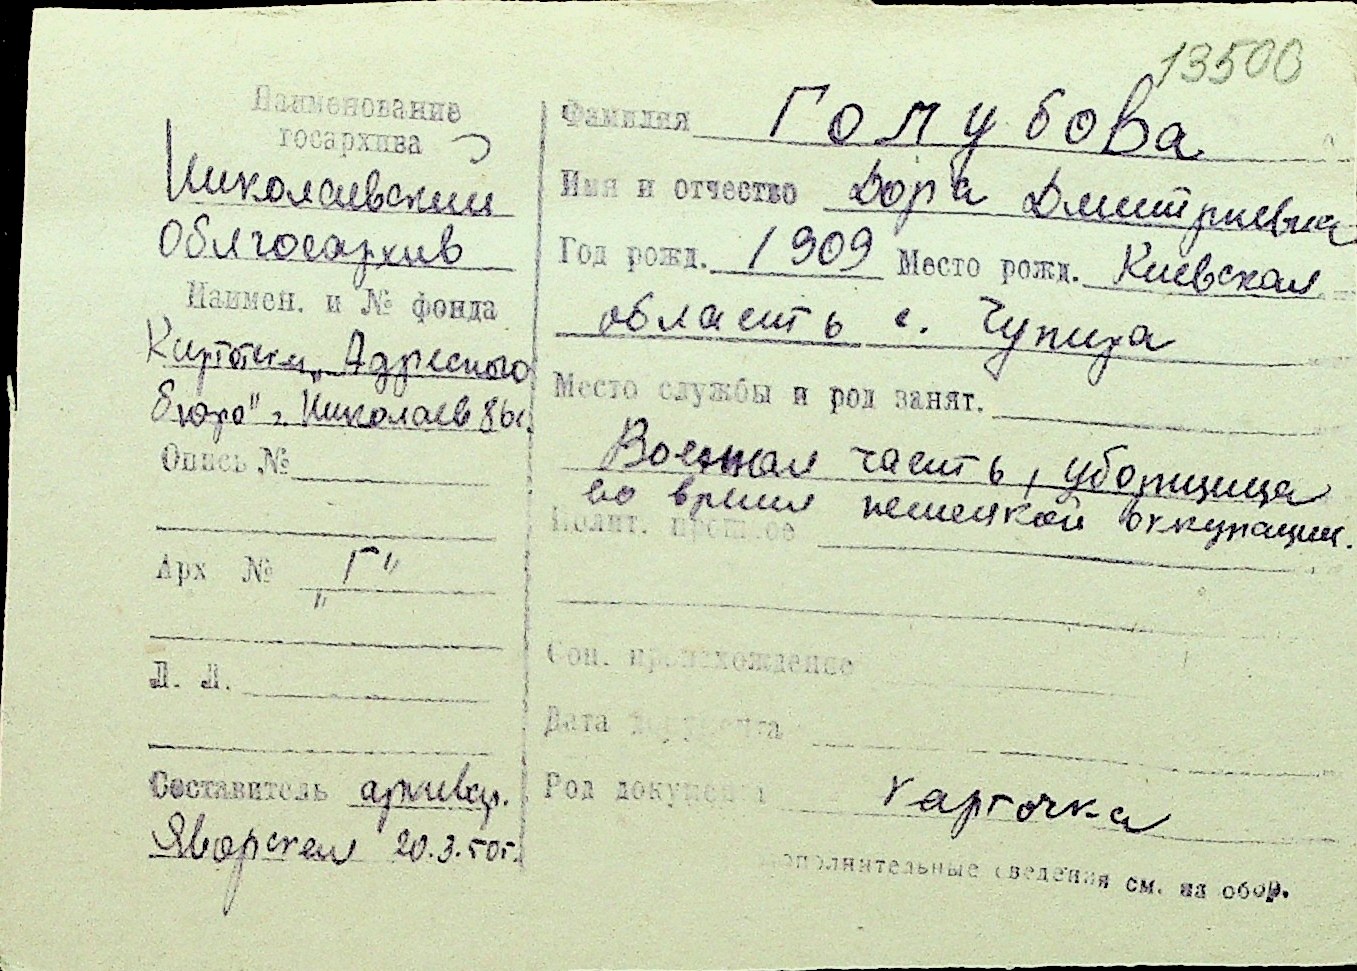 13500
Наименование
госархива
Николаевский
Облгосархив
Наимен. и № фонда
Картотеки "Адресного
бюро" г. Николаев
Опись №
Арх № "Г"
Л. Л.
Составитель архивар.
Яворская 20.3.50г.
Фамилия Голубова
Имя и отчество Дора Дмитриевна
Год рожд. 1909 Место рожд. Киевская
область с. Чупира
Место службы и род занят.
Военная часть, уборщица
во время немецкой оккупации.
Полит. прошлое
Соц. происхождение
Дата документа
Род документа карточка
Дополнительные сведения см. на обор.